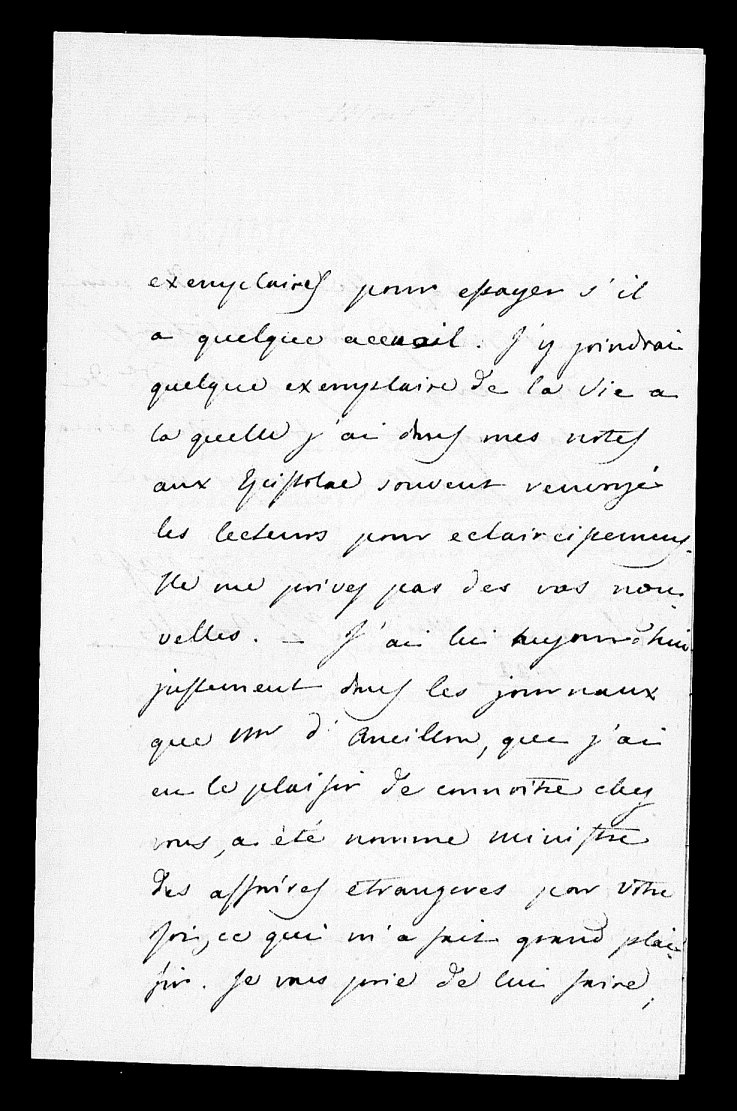 exemplaires pour essayer s'il
a quelque accueil. J'y joindrai
quelque exemplaire de la Vie a
la quelle j'ai dans mes notes
aux Epistolae souvent renvoyé
les lecteurs pour eclaircissemens.
Ne me privez pas des vos nou-
velles. – J'ai lu aujourd'hui
justement dans les journaux
que Mr d'Ancillon, que j'ai
eu le plaisir de connoître chez
vous, a été nomme ministre
des affaires etrangeres par votre
roi, ce qui m'a fait grand plai-
sir. Je vous prie de lui faire,